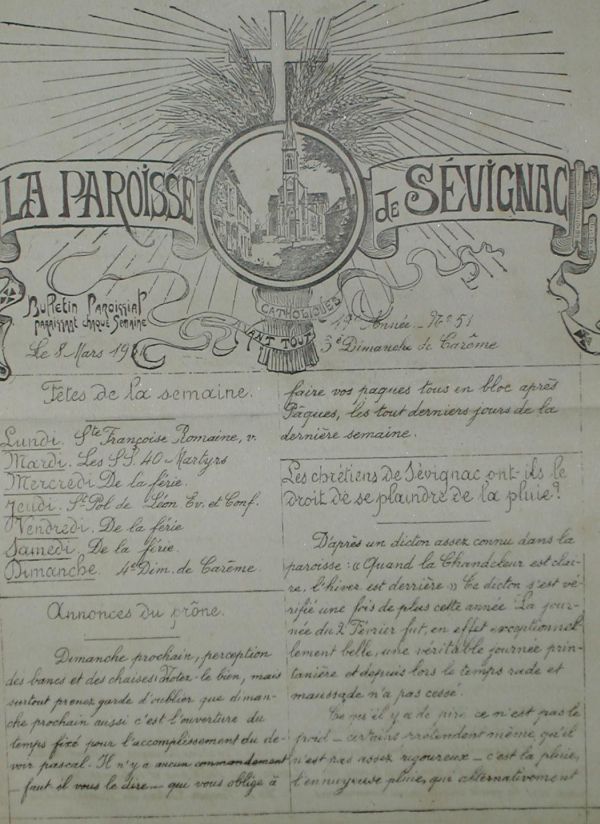 LA PAROISSE
de SÉVIGNAC
CATHOLIQUES
AVANT TOUT
Bulletin Paroissial
paraissant chaque semaine
Le 8 Mars
Année - N° 51
3e Dimanche de Carême
Fêtes de la semaine.
Lundi. Ste Françoise Romaine, v.
Mardi. Les SS. 40 Martyrs
Mercredi. De la férie.
Jeudi. St Pol de Léon Ev. et Conf.
Vendredi. De la férie
Samedi. De la férie.
Dimanche. 4e Dim. de Carême.
Annonces du prône.
Dimanche prochain, perception
des bancs et des chaises. Notez-le bien, mais
surtout prenez garde d'oublier que diman-
che prochain aussi c'est l'ouverture du
temps fixé pour l'accomplissement du de-
voir pascal. Il n'y a aucun commandement
- faut il vous le dire - qui vous oblige à
faire vos paques tous en bloc après
Pâques, les tout derniers jours de la
dernière semaine.
Les chrétiens de Sévignac ont-ils le
droit de se plaindre de la pluie?
D'après un dicton assez connu dans la
paroisse: « Quand la Chandeleur est clai-
re, l'hiver est derrière » Ce dicton s'est vé-
rifié une fois de plus cette année. La jour-
née du 2 Février fut, en effet exceptionnel-
lement belle, une véritable journée prin-
tanière et depuis lors le temps rude et
maussade n'a pas cessé.
Ce qu'il y a de pire ce n'est pas le
froid - certains prétendent même qu'il
n'est pas assez rigoureux - c'est la pluie,
l'ennuyeuse pluie, qui alternativement